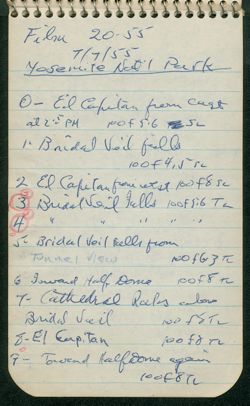 Film 20-55
7/7/55
Yosemite Nat'l Park
0- El Capitan from east
at 2:15 PM 100 f 5.6 SL
1- Bridal Veil falls
100 f 4.5 TL
2 El Capitan from west 100 f 8 SL
3 Bridal Veil Falls 100 f 5.6 TL
4 " " " " "
5- Bridal Veil Falls from
Tunnel View 100 f 6.3 TL
6 Toward Half Dome 100 f 8 TL
7- Cathedral Rocks above
Bridal Veil 100 f 8 TL
8- El Capitan 100 f 8 TL
9- Toward Half Dome again
100 f 8 TL